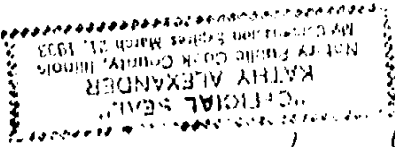 "OFFICIAL SEAL"
KATHY ALEXANDER
Notary Public Cook County, Illinois
My Commission Expires March 21, 1993